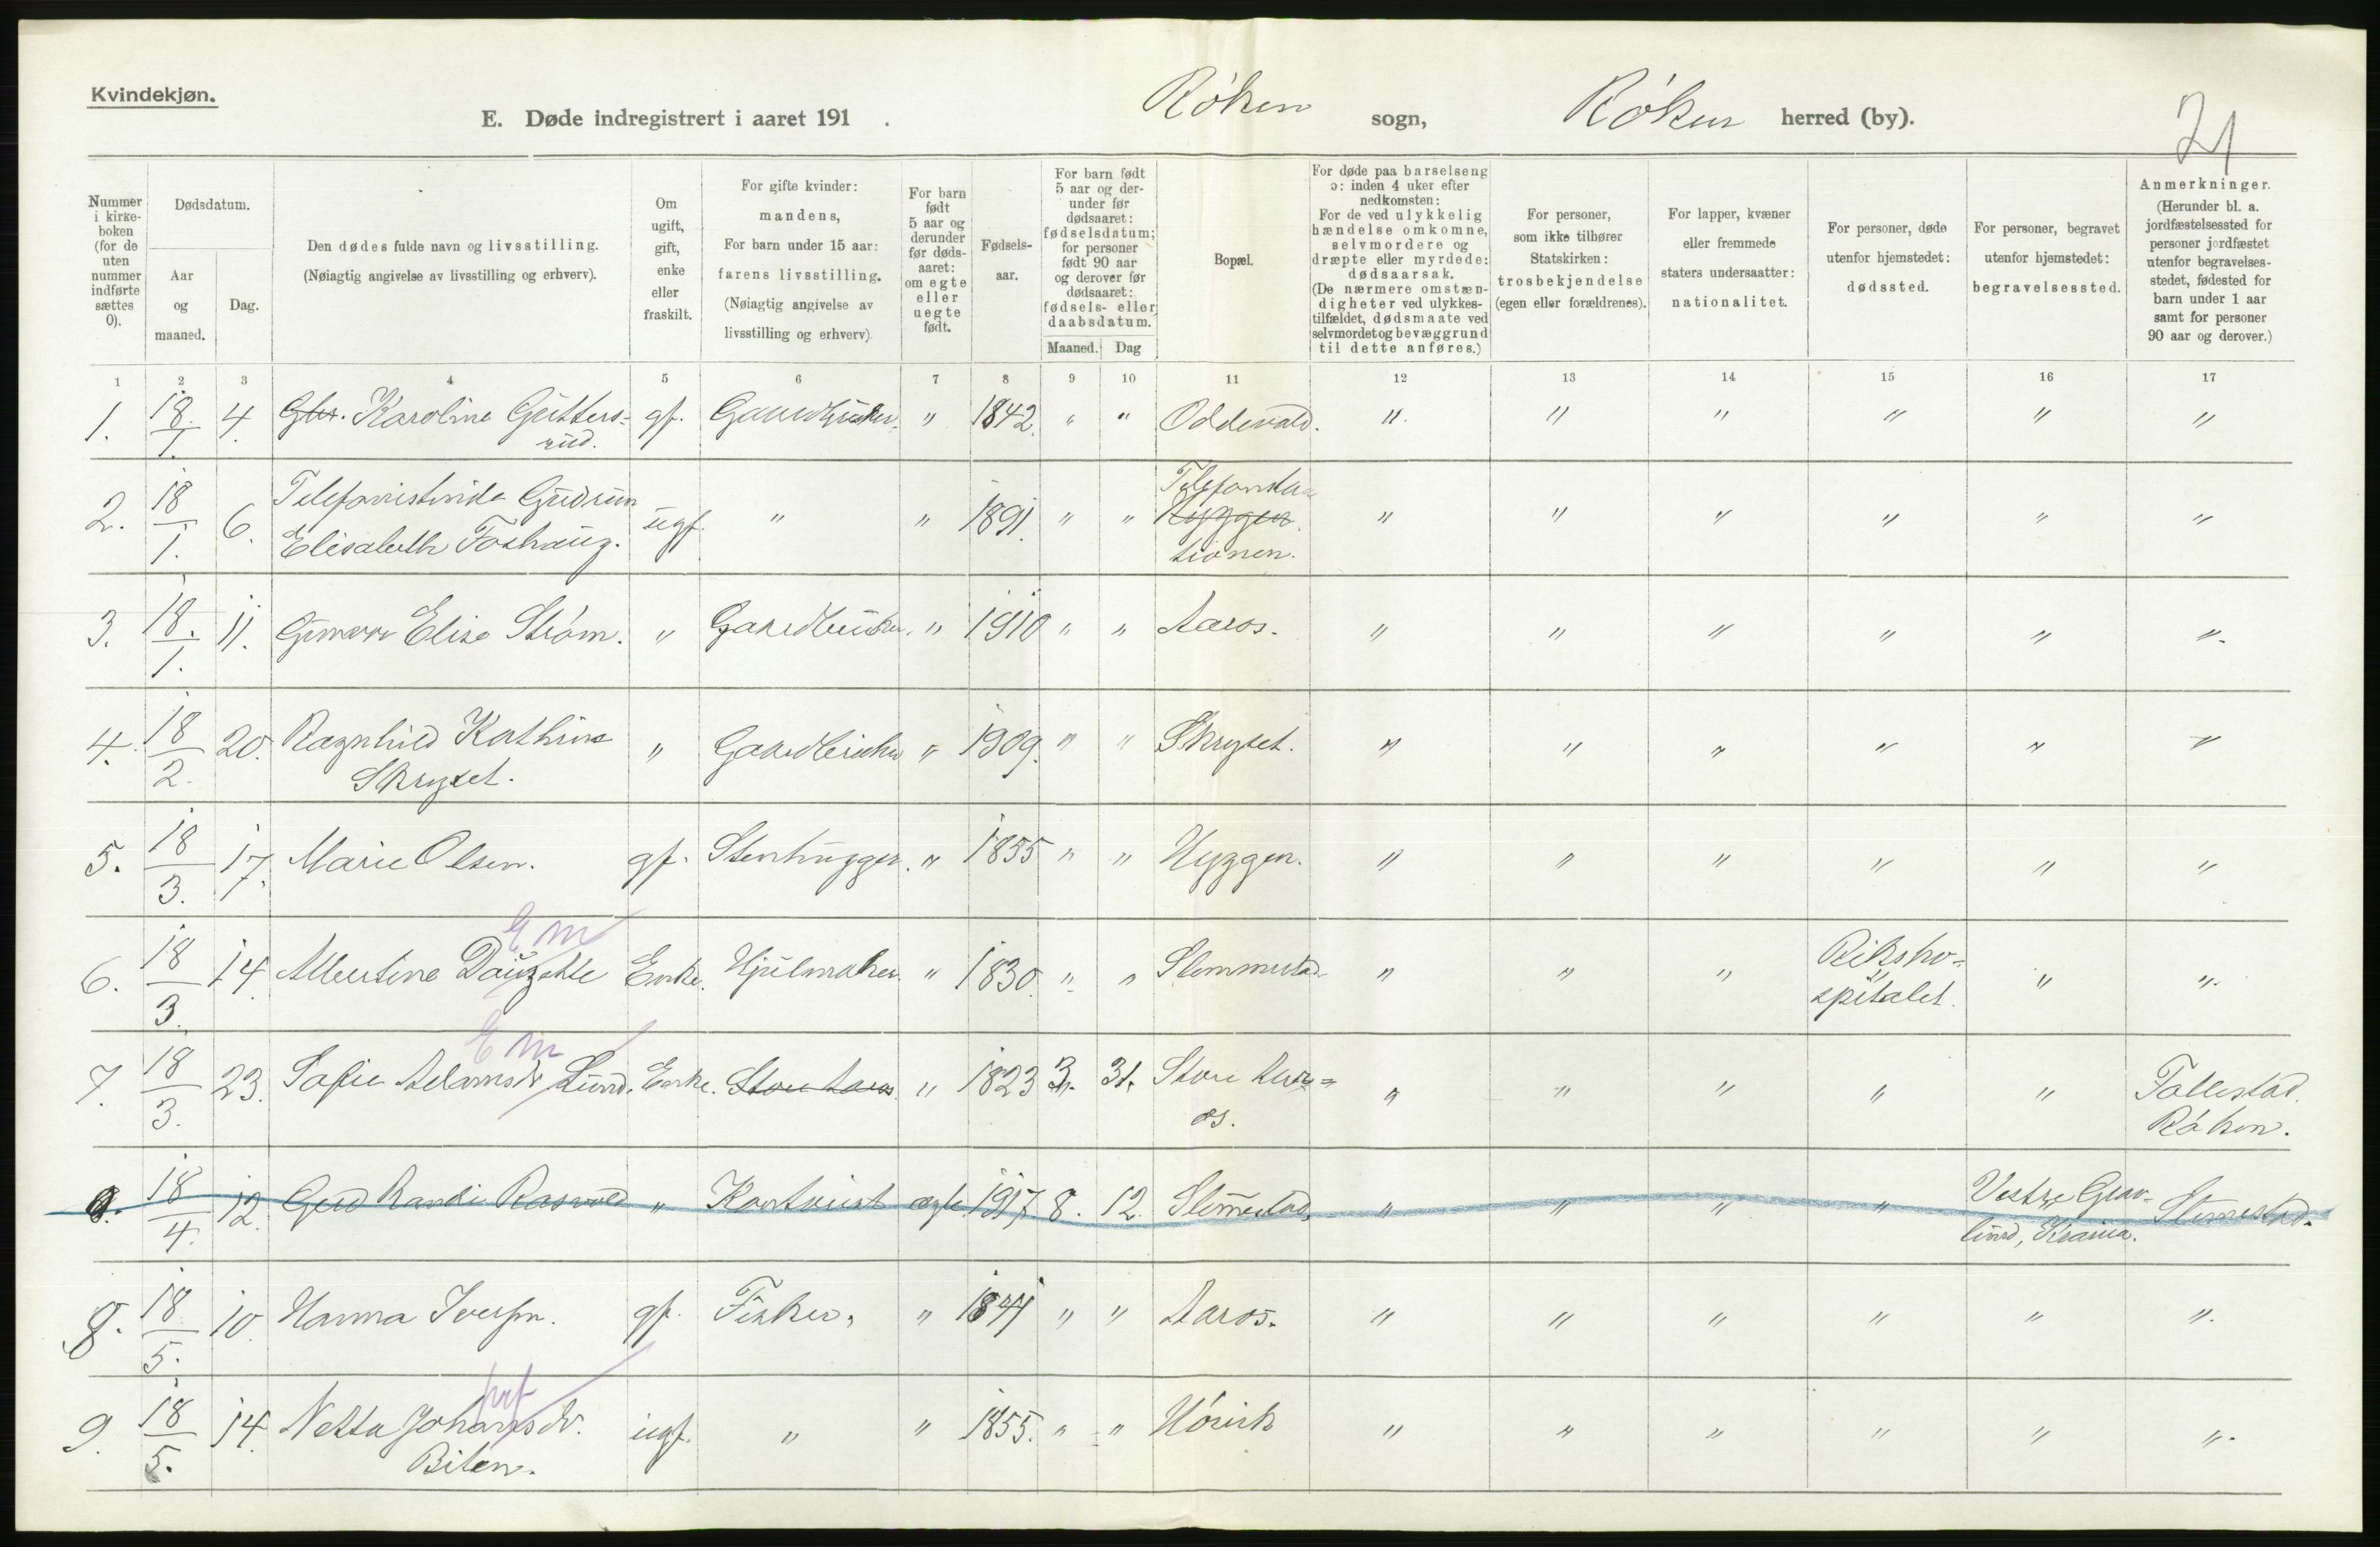 Kvindekjøn.
E. Døde indregistrert i aaret 191 . Røken sogn, Røken herred (by). 21
Nummer i kirke-boken (for de uten nummer indførte sættes 0).
Dødsdatum.
Aar og maaned.
Dag.
Den dødes fulde navn og livsstilling.
(Nøiagtig angivelse av livsstilling og erhverv).
Om ugift, gift, enke eller fraskilt.
For gifte kvinder: mandens,
For barn under 15 aar: farens livsstilling.
(Nøiagtig angivelse av livsstilling og erhverv)
For barn født 5 aar og derunder før døds-aaret: om egte eller uegte født.
Fødsels-aar.
For barn født 5 aar og der-under før dødsaaret: fødselsdatum; for personer født 90 aar og derover før dødsaaret: fødsels- eller daabsdatum.
Maaned. Dag
Bopæl.
For døde paa barselseng ɔ: inden 4 uker efter nedkomsten:
For de ved ulykkelig hændelse omkomne, selvmordere og dræpte eller myrdede: dødsaarsak.
(De nærmere omstæn-digheter ved ulykkes-tilfældet, dødsmaate ved selvmordet og bevæggrund til dette anføres.)
For personer, som ikke tilhører Statskirken: trosbekjendelse (egen eller forældrenes).
For lapper, kvæner eller fremmede staters undersaatter: nationalitet.
For personer, døde utenfor hjemstedet: dødssted.
For personer, begravet utenfor hjemstedet: begravelsessted.
Anmerkninger.
(Herunder bl. a. jordfæstelsessted for personer jordfæstet utenfor begravelses-stedet, fødested for barn under 1 aar samt for personer 90 aar og derover.)
1 2 3 4 5 6 7 8 9 10 11 12 13 14 15 16 17
1. 18/1. 4. Gbr. Karoline Guttersrud. gf. Gaardbruker. " 1842. " " Oddevald. " " " " " "
2. 18/1. 6. Telefonistinde Gudrun Elisabeth Foshaug. ugf. " " 1891. " " Telefonsta Hyggen. tionen. " " " " " "
3. 18./1. 11. Elise Strøm. " Gaardbruker. " 1910 " " Aaros. " " " " " "
4. 18/2. 20. Ragnhild Kathine Skryset. " Gaardbruker " 1909. " " Skryset. " " " " " "
5. 18/3. 17. Marie Olsen. gf. Stenhugger. " 1855 " " Hyggen. " " " " " "
Em
6. 18/3. 14. Albertine Enke. Hjulmaker. " 1830. " " Slemmestad " " " Rikshospitalet. " "
Em
7. 18/3. 23. Sofie Adamsdr Lund. Enke. Store Aaros. " 1823 3. 31. Store Aaros. " " " " " Follestad. Røken.
8. 18/4. 12. Gerd Randi " Kontorist ægte 1917 8. 12. Slemestad. " " " " Vestre Gravlund, Krania. Slemestad.
8. 18/5. 10. Hanna Iversen. gf. Fisker. " 1841 " " Aaros. " " " " " "
9. 18/5. 14. Netta Johansdr. Biten. ugf. " " 1855. " " Hørvik " " " " " "